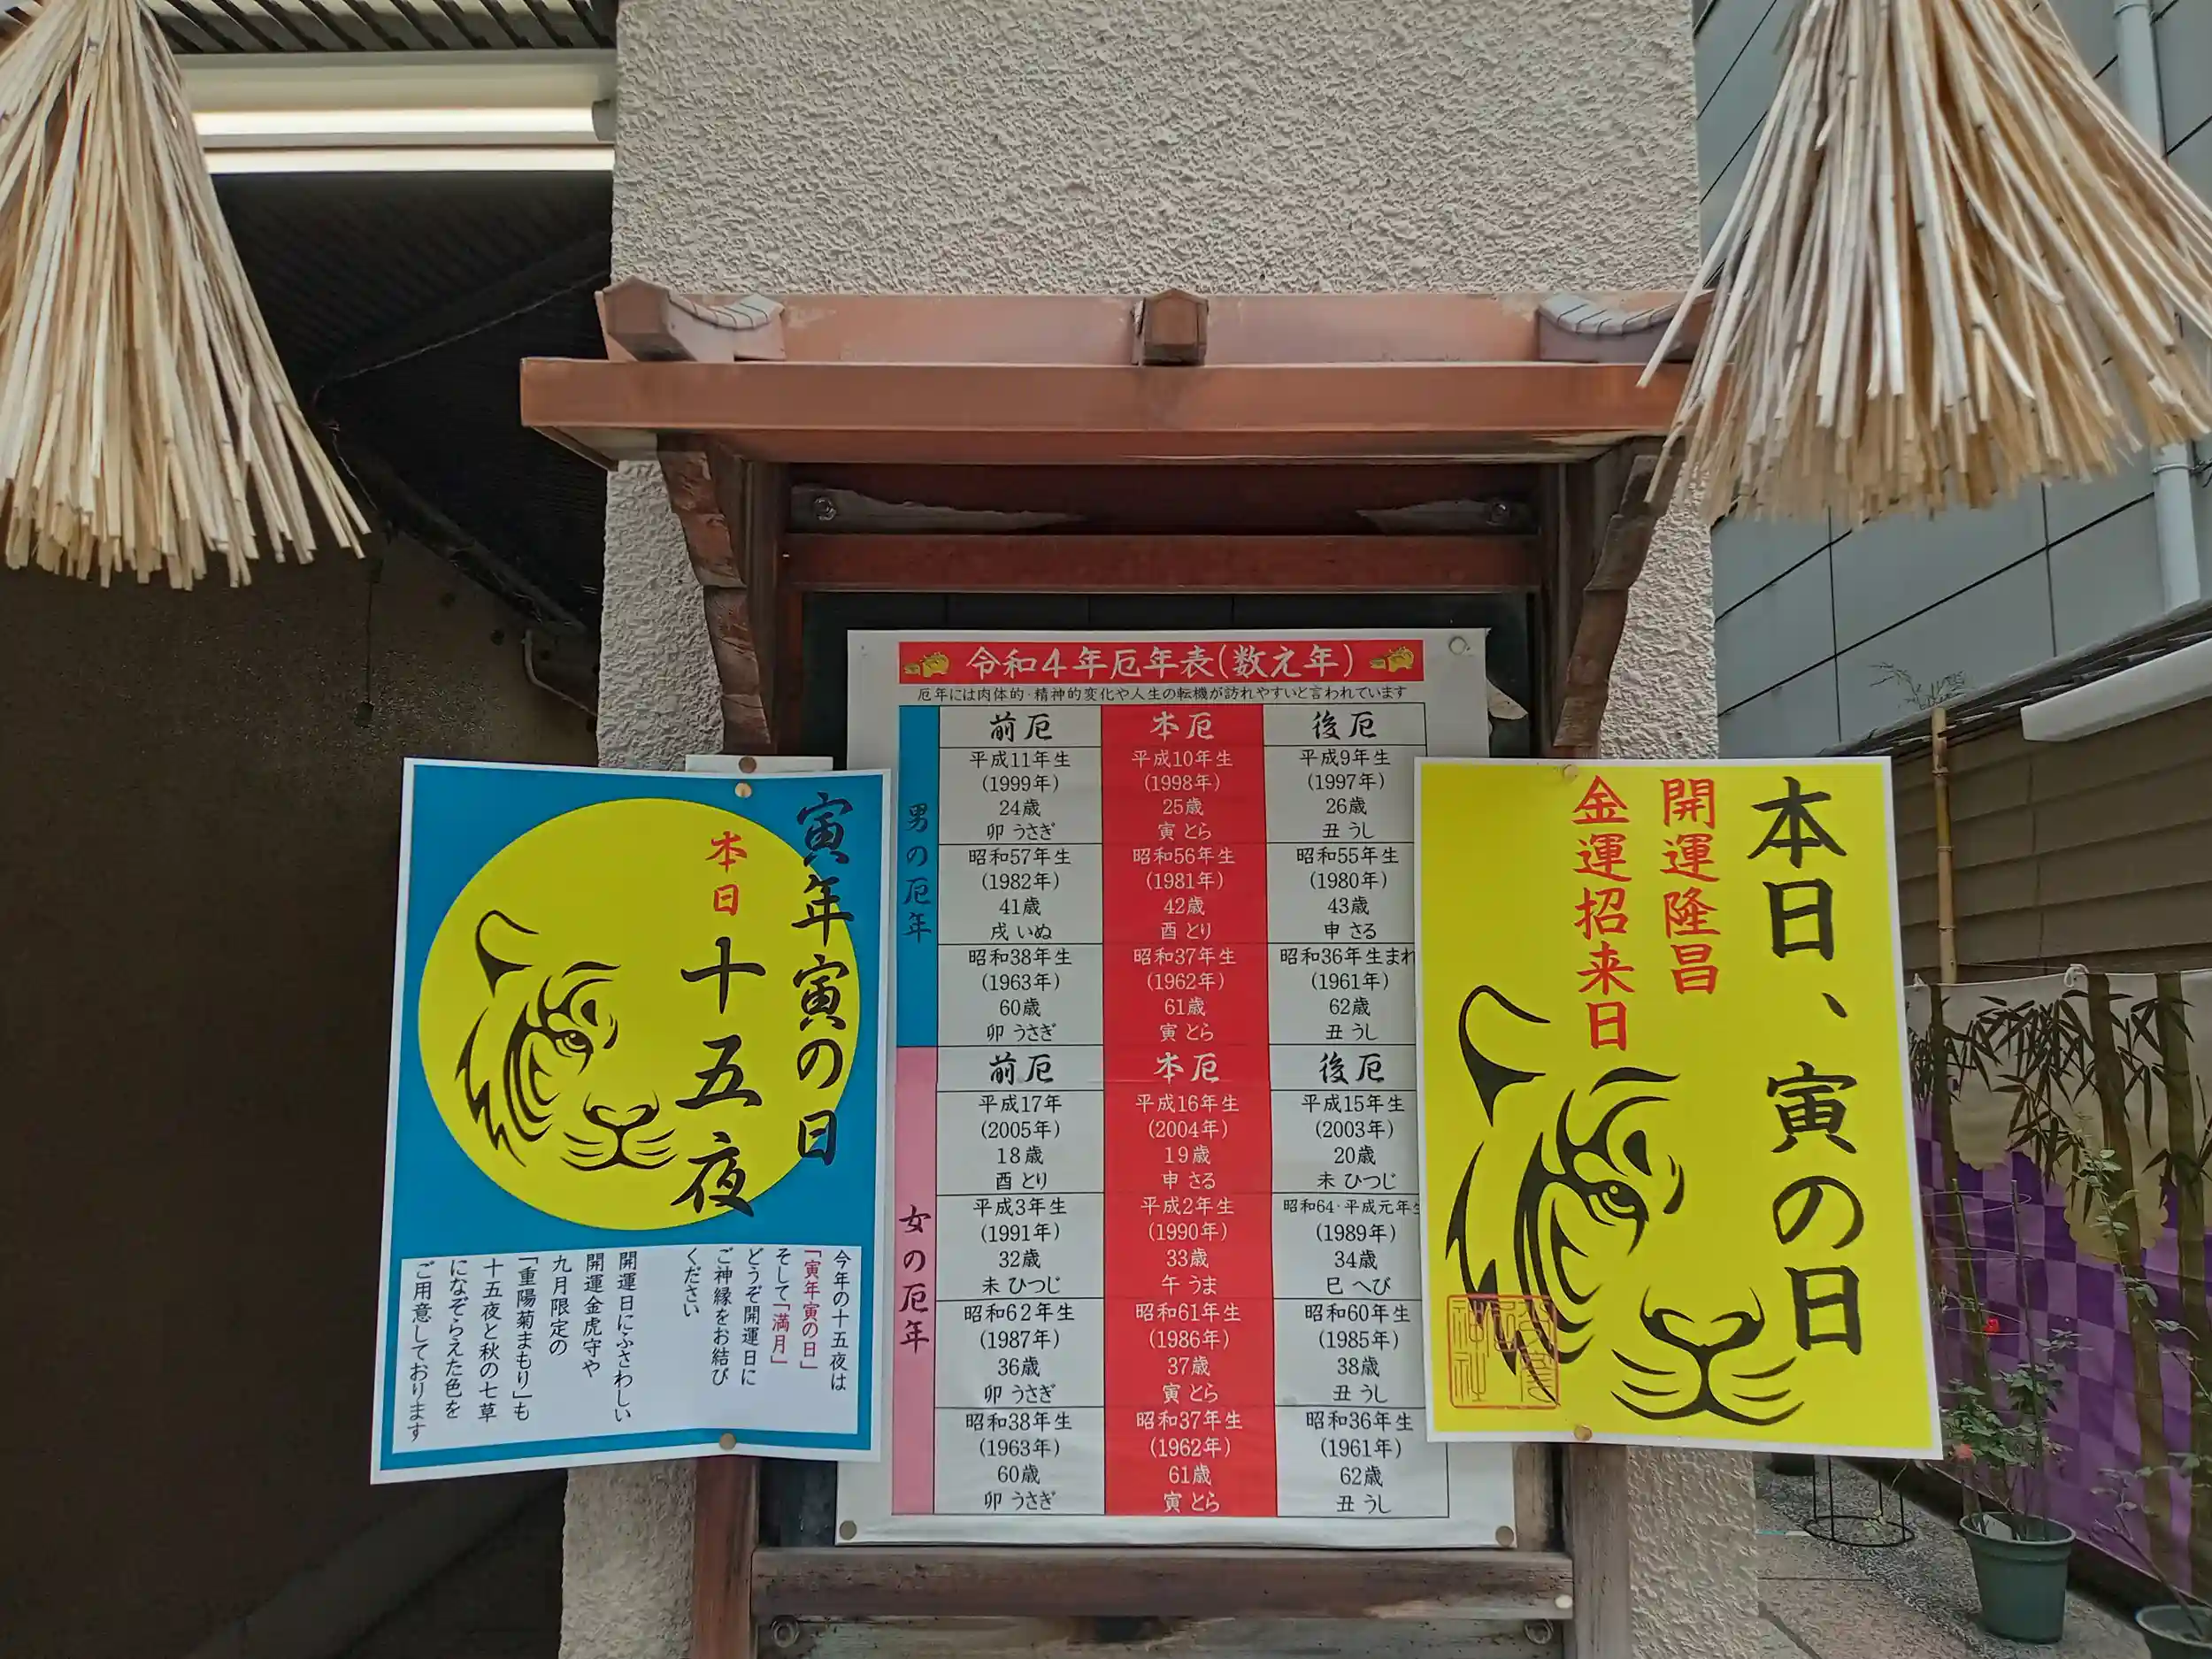 寅年寅の日
本日
十五夜
今年の十五夜は
「寅年寅の日」
そして「満月」
どうぞ開運日に
ご神縁をお結び
ください
開運日にふさわしい
開運金虎守や
九月限定の
「重陽菊まもり」も
十五夜と秋の七草
になぞらえた色を
ご用意しております
令和4年厄年表(数え年)
厄年には肉体的・精神的変化や人生の転機が訪れやすいと言われています
男の厄年
前厄 本厄 後厄
平成11年生 平成10年生 平成9年生
(1999年) (1998年) (1997年)
24歳 25歳 26歳
卯 うさぎ 寅 とら 丑 うし
昭和57年生 昭和56年生 昭和55年生
(1982年) (1981年) (1980年)
41歳 42歳 43歳
戌 いぬ 酉 とり 申 さる
昭和38年生 昭和37年生 昭和36年生まれ
(1963年) (1962年) (1961年)
60歳 61歳 62歳
卯 うさぎ 寅 とら 丑 うし
女の厄年
前厄 本厄 後厄
平成17年 平成16年生 平成15年生
(2005年) (2004年) (2003年)
18歳 19歳 20歳
酉 とり 申 さる 未 ひつじ
平成3年生 平成2年生 昭和64・平成元年生
(1991年) (1990年) (1989年)
32歳 33歳 34歳
未 ひつじ 午 うま 巳 へび
昭和62年生 昭和61年生 昭和60年生
(1987年) (1986年) (1985年)
36歳 37歳 38歳
卯 うさぎ 寅 とら 丑 うし
昭和38年生 昭和37年生 昭和36年生
(1963年) (1962年) (1961年)
60歳 61歳 62歳
卯 うさぎ 寅 とら 丑 うし
本日、寅の日
開運隆昌
金運招来日
神社